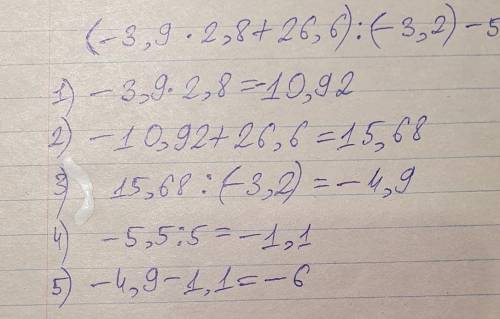 (-3,9 · 2,8 + 26,6) : (-3,2) - 5
1) -3,9 · 2,8 = -10,92
2) -10,92 + 26,6 = 15,68
3) 15,68 : (-3,2) = -4,9
4) -5,5 : 5 = -1,1
5) -4,9 - 1,1 = -6